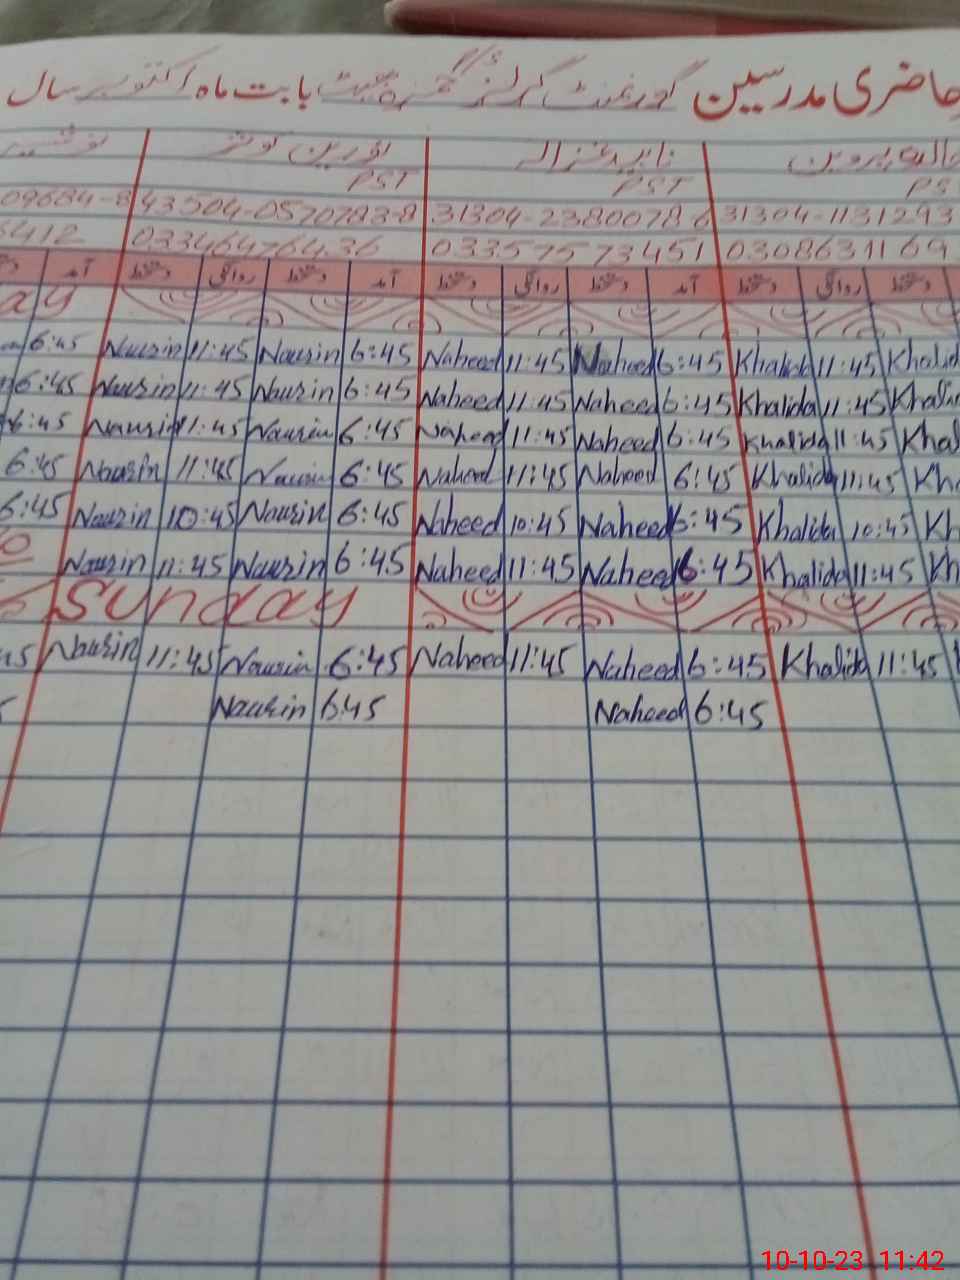 حاضری مدرسین گورنمنٹ گرلز بابت ماہ اکتوبر سال
نورین کوثر ناہید غزالہ خالدہ پروین
PST PST PS
09684-8 43504-0570783-8 31304-2380078-6 31304-1131293
6412 03346476436 03357573451 0308631169
آمد دستخط روانگی دستخط آمد دستخط روانگی دستخط آمد دستخط روانگی دستخط
ay
6:45 Naurin 11:45 Naurin 6:45 Naheed 11:45 Naheed 6:45 Khalida 11:45 Khalid
6:45 Naurin 11:45 Naurin 6:45 Naheed 11:45 Naheed 6:45 Khalida 11:45 Khalid
6:45 Naurin 11:45 Naurin 6:45 Naheed 11:45 Naheed 6:45 Khalida 11:45 Khal
6:45 Naurin 11:45 Naurin 6:45 Naheed 11:45 Naheed 6:45 Khalida 11:45 Kha
6:45 Naurin 10:45 Naurin 6:45 Naheed 10:45 Naheed 6:45 Khalida 10:45 Kh
Naurin 11:45 Naurin 6:45 Naheed 11:45 Naheed 6:45 Khalida 11:45 Kh
Sunday
45 Naurin 11:45 Naurin 6:45 Naheed 11:45 Naheed 6:45 Khalida 11:45
5 Naurin 6:45 Naheed 6:45
10-10-23 11:42